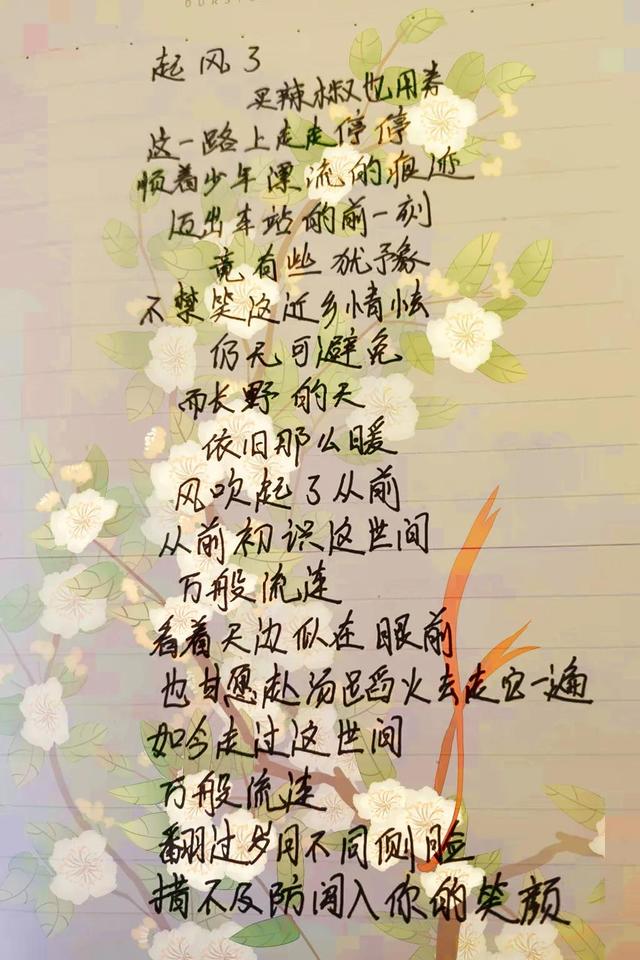 起风了
买辣椒也用券
这一路上走走停停
顺着少年漂流的痕迹
迈出车站的前一刻
竟有些犹豫
不禁笑这近乡情怯
仍无可避免
而长野的天
依旧那么暖
风吹起了从前
从前初识这世间
万般流连
看着天边似在眼前
也甘愿赴汤蹈火去走它一遍
如今走过这世间
万般流连
翻过岁月不同侧脸
措不及防闯入你的笑颜